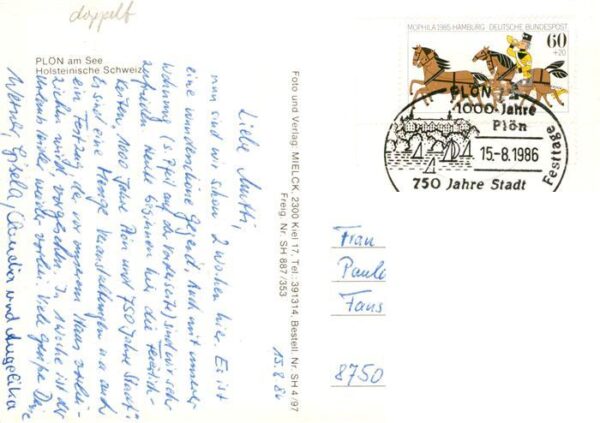 doppelt
PLÖN am See
Holsteinische Schweiz
15.8.86
Liebe Mutti,
nun sind wir schon 2 Wochen hier. Es ist
eine wunderschöne Gegend. Auch mit unserer
Wohnung (s. Pfeil auf der Vorderseite) sind wir sehr
zufrieden. Heute beginnen hier die Feierlich-
keiten, 1000 Jahre Plön und 750 Jahre Stadt.
Es sind eine Menge Veranstaltungen u.a. auch
ein Festzug, der vor unserem Haus vorbei-
ziehen wird, vorgesehen. In 1 Woche ist der
Urlaub leider wieder vorbei. Viele Grüße Deine
Werner, Gisela, Claudia und Angelika
Foto und Verlag: MIELCK, 2300 Kiel 17, Tel. 391314 Bestell Nr. SH 4/97
Freig. Nr. SH 887/353
MOPHILA 1985 HAMBURG DEUTSCHE BUNDESPOST
60
+20
PLÖN
1000 Jahre
Plön
15.-8.1986
750 Jahre Stadt
Festtage
Frau
Paula
Faus
8750